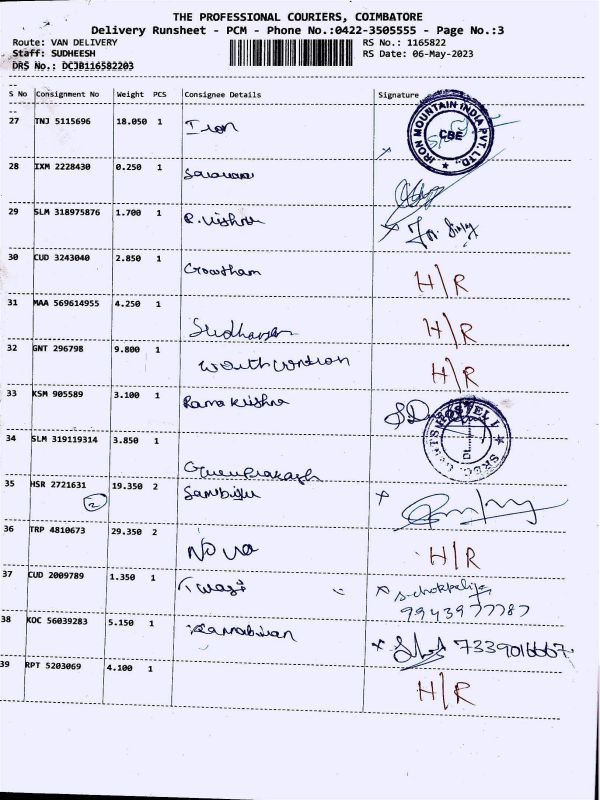 THE PROFESSIONAL COURIERS, COIMBATORE
Delivery Runsheet - PCM - Phone No.:0422-3505555 - Page No.:3
Route: VAN DELIVERY RS No.: 1165822
Staff: SUDHEESH RS Date: 06-May-2023
DRS No.: DCJB116582203
S No Consignment No Weight PCS Consignee Details Signature
27 TNJ 5115696 18.050 1 Iron
IRON MOUNTAIN INDIA PVT. LTD.
CBE
28 IXM 2228430 0.250 1 Saravana
29 SLM 318975876 1.700 1 R. Vishnu
30 CUD 3243040 2.850 1 Gowtham H/R
31 MAA 569614955 4.250 1 Sudharsan H/R
32 GNT 296798 9.800 1 H/R
33 KSM 905589 3.100 1 Rama Krishna
34 SLM 319119314 3.850 1 Guruprakash
35 HSR 2721631 19.350 2
2
36 TRP 4810673 29.350 2 Nova H/R
37 CUD 2009789 1.350 1
9943977787
38 KOC 56039283 5.150 1 7339016667
39 RPT 5203069 4.100 1 H/R